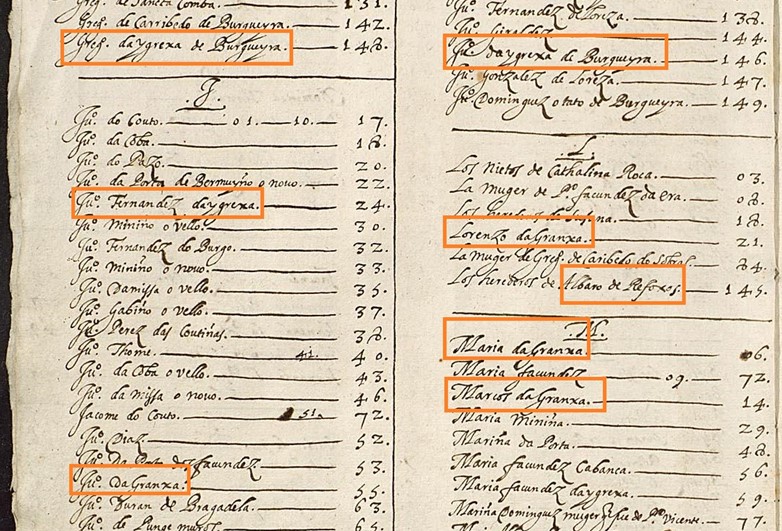 Greg. de Sancta Comba. 131.
Greg. de Carribedo de Burgueyra. 142.
Greg. daygrexa de Burgueyra. 148.
.J.
Ju.º do Couto. 01. 10. 17.
Ju.º da Coba. 18.
Ju.º do Pazo. 20.
Ju.º da Porta de Bermuyño o novo. 22.
Ju.º Fernandez daygrexa. 24.
Ju.º Miniño o vello. 30.
Ju.º Fernandez do Burgo. 32.
Ju.º miniño o novo. 33.
Ju.º Damissa o vello. 35.
Ju.º Gabiño o vello. 37.
Ju.º Perez das Coutiñas. 38.
Ju.º Thome. 41. 40.
Ju.º da Coba o vello. 43.
Ju.º da missa o novo. 46.
Jacome do Couto. 51. 72.
Ju.º Diaz. 52.
Ju.º Da facundez. 53.
Ju.º DaGranxa. 55.
Ju.º Duran de Bragadela. 63.
Ju.º de 65.
Ju.º Fernandez de Loreza. 138.
Ju.º Giraldez. 144.
Ju.º daygrexa de Burgueyra. 146.
Ju.º Gonzalez de Loreza. 147.
Ju.º Dominguez o tato de Burgueyra. 149.
.L.
Los Nietos de Cathalina Roca. 03.
La muger de P.º facundez da era. 08.
Los herederos de 18.
Lorenzo daGranxa. 21.
La muger de Greg. de Caribedo do Sobral. 84.
Los herederos de Albaro de Refoxos. 145.
.M.
Maria daGranxa. 06.
Maria facundez. 09. 72.
Marcos daGranxa. 14.
Maria Miniña. 29.
Mariña da Porta. 48.
Maria facundez Cabanca. 56.
Maria facundez daygrexa. 59.
Mariña Dominguez muger de P.º Vicente. 77.